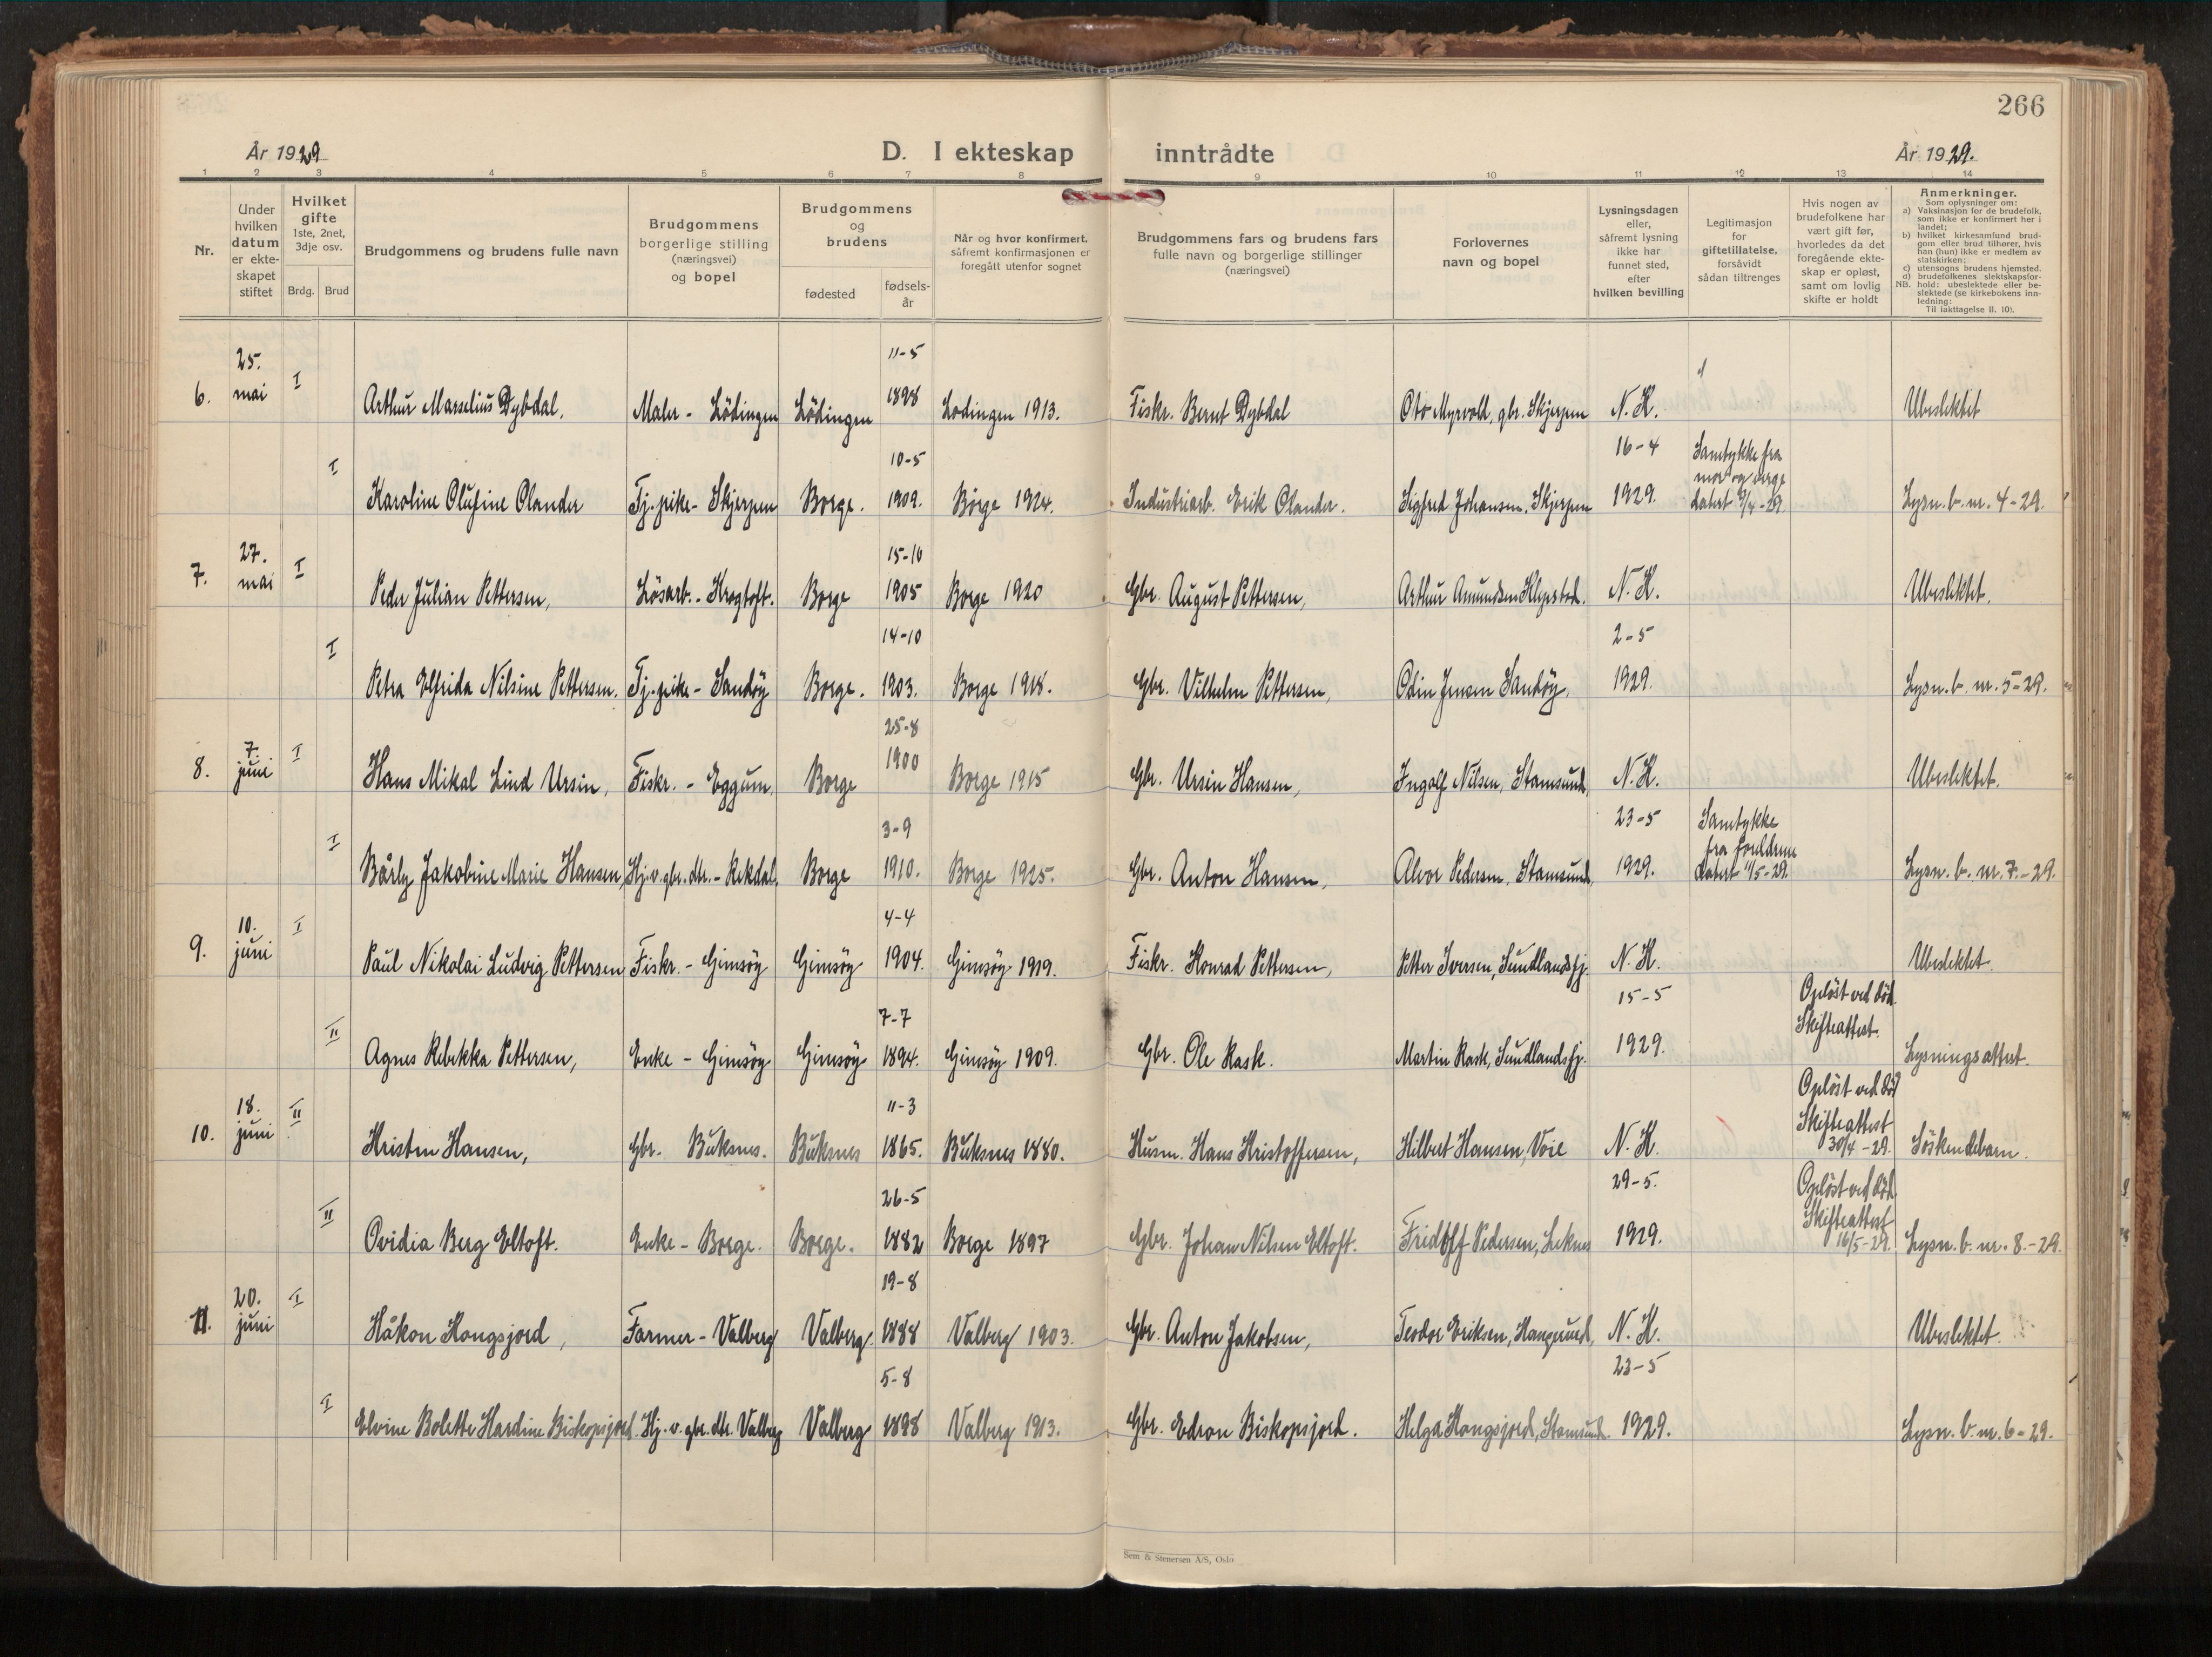 266
År 1929
D. I ekteskap inntrådte
År 1929.
1 2 3 4 5 6 7 8 9 10 11 12 13 14
Nr.
Under hvilken datum er ekteskapet stiftet
Hvilket gifte 1ste, 2net, 3dje osv.
Brdg. Brud
Brudgommens og brudens fulle navn
Brudgommens borgerlige stilling (næringsvei) og bopel
Brudgommens og brudens
fødested
fødselsår
Når og hvor konfirmert, såfremt konfirmasjonen er foregått utenfor sognet
Brudgommens fars og brudens fars fulle navn og borgerlige stillinger (næringsvei)
Forlovernes navn og bopel
Lysningsdagen eller, såfremt lysning ikke har funnet sted, efter hvilken bevilling
Legitimasjon for giftetillatelse, forsåvidt sådan tiltrenges
Hvis nogen av brudefolkene har vært gift før, hvorledes da det foregående ekteskap er opløst, samt om lovlig skifte er holdt
Anmerkninger.
Som oplysninger om:
a) Vaksinasjon for de brudefolk, som ikke er konfirmert her i landet;
b) hvilket kirkesamfund brudgom eller brud tilhører, hvis han (hun) ikke er medlem av statskirken;
c) utensogns brudens hjemsted.
d) brudefolkenes slektskapsforhold: ubeslektede eller beslektede (se kirkebokens innledning:
NB.
Til iakttagelse II. 10).
6. 25. mai I Arthur Marselius Dybdal, Maler - Lödingen Lödingen 11-5 1898 Lodingen 1913. Fiskr. Bernt Dybdal Oto Myrvold, gbr. Skjerpen N. K. Ubeslektet
I Karoline Olufine Olander Tj. pike - Skjerpen Borge. 10-5 1909. Borge 1924. Industriarb. Erik Olander. Sigfred Johansen, Skjerpen 16-4 1929. Samtykke fra mor og verge datert /4-29. Lysn. b. nr. 4-29.
7. 27. mai I Peder Julian Pettersen, Lösarb. - Krogtoft. Borge 15-10 1905 Borge 1920 Gbr. August Pettersen, Arthur Amundsen Klepstad. N. K. Ubeslektet.
I Petra Elfrida Nilsine Pettersen. Tj. pike - Sandöy Borge. 14-10 1903. Borge 1918. Gbr. Vilhelm Pettersen, Odin Jensen Sandöy. 2-5 1929. Lysn. b. nr. 5-29.
8. 7. juni I Hans Mikal Lind Ursin, Fiskr. - Eggum, Borge 25-8 1900 Borge 1915 Gbr. Ursin Hansen, Ingolf Nilsen, Stamsund, N. K. Ubeslektet.
I Bårly Jakobine Marie Hansen, Hj. v. gbr. dtr. - Rekdal, Borge 3-9 1910. Borge 1925. Gbr. Anton Hansen, Alvor Pedersen, Stamsund, 23-5 1929. Samtykke fra foreldrene datert 11/5-29. Lysn. b. nr. 7.-29.
9. 10. juni I Paul Nikolai Ludvig Pettersen Fiskr. - Gimsöy Gimsöy 4-4 1904. Gimsöy 1919. Fiskr. Konrad Pettersen, Petter Iversen, Sundlandsfj. N. K. Ubeslektet.
II Agnes Rebekka Pettersen, Enke - Gimsöy Gimsöy 7-7 1894. Gimsöy 1909. Gbr. Ole Rask. Martin Rask, Sundlandsfj. 15-5 1929. Oplöst ved död. Skifteattest. Lysningsattest.
10. 18. juni II Kristen Hansen, Gbr. Buksnes. Buksnes 11-3 1865. Buksnes 1880. Husm. Hans Kristoffersen, Hilbert Hansen, Voie N. K. Oplöst ved död Skifteattest 30/4-29. Söskendebarn.
II Ovidia Berg Eltoft. Enke - Borge. Borge. 26-5 1882 Borge 1897 Gbr. Johan Nilsen Eltoft. Fridtjof Pedersen, Leknes 29-5. 1929. Oplöst ved död. Skifteattest 16/5-29. Lysn. b. nr. 8.-29.
11. 20. juni I Håkon Kongsjord, Farmer - Valberg Valberg. 19-8 1888 Valberg 1903. Gbr. Anton Jakobsen, Teodor Eriksen, N. K. Ubeslektet.
I Elvine Bolette Hardine Biskopsjord. Hj. v. gbr. dtr. Valberg Valberg 5-8 1898 Valberg 1913. Gbr. Edron Biskopsjord. Helga Kongsjord, Stamsund. 23-5 1929. Lysn. b. nr. 6-29.
Sem & Stenersen A/S, Oslo